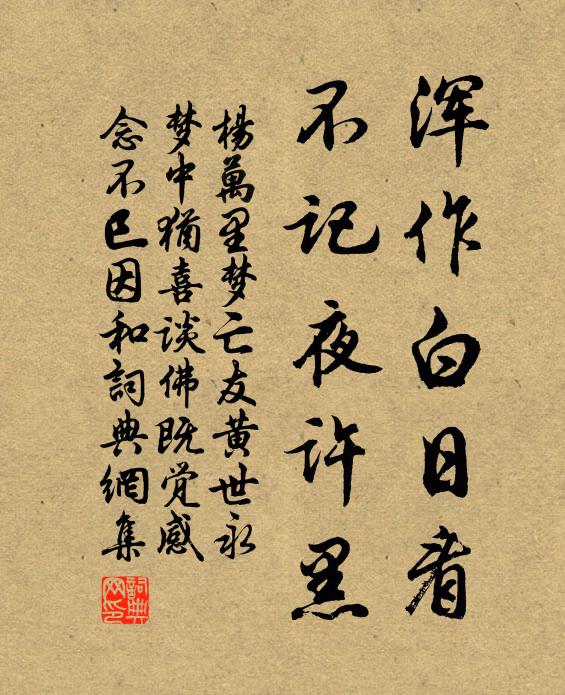 浑作白日看
不记夜许黑
楊萬里梦亡友黄世永
梦中猶喜谈佛既觉感
念不已因和詞典網集
詞典网印